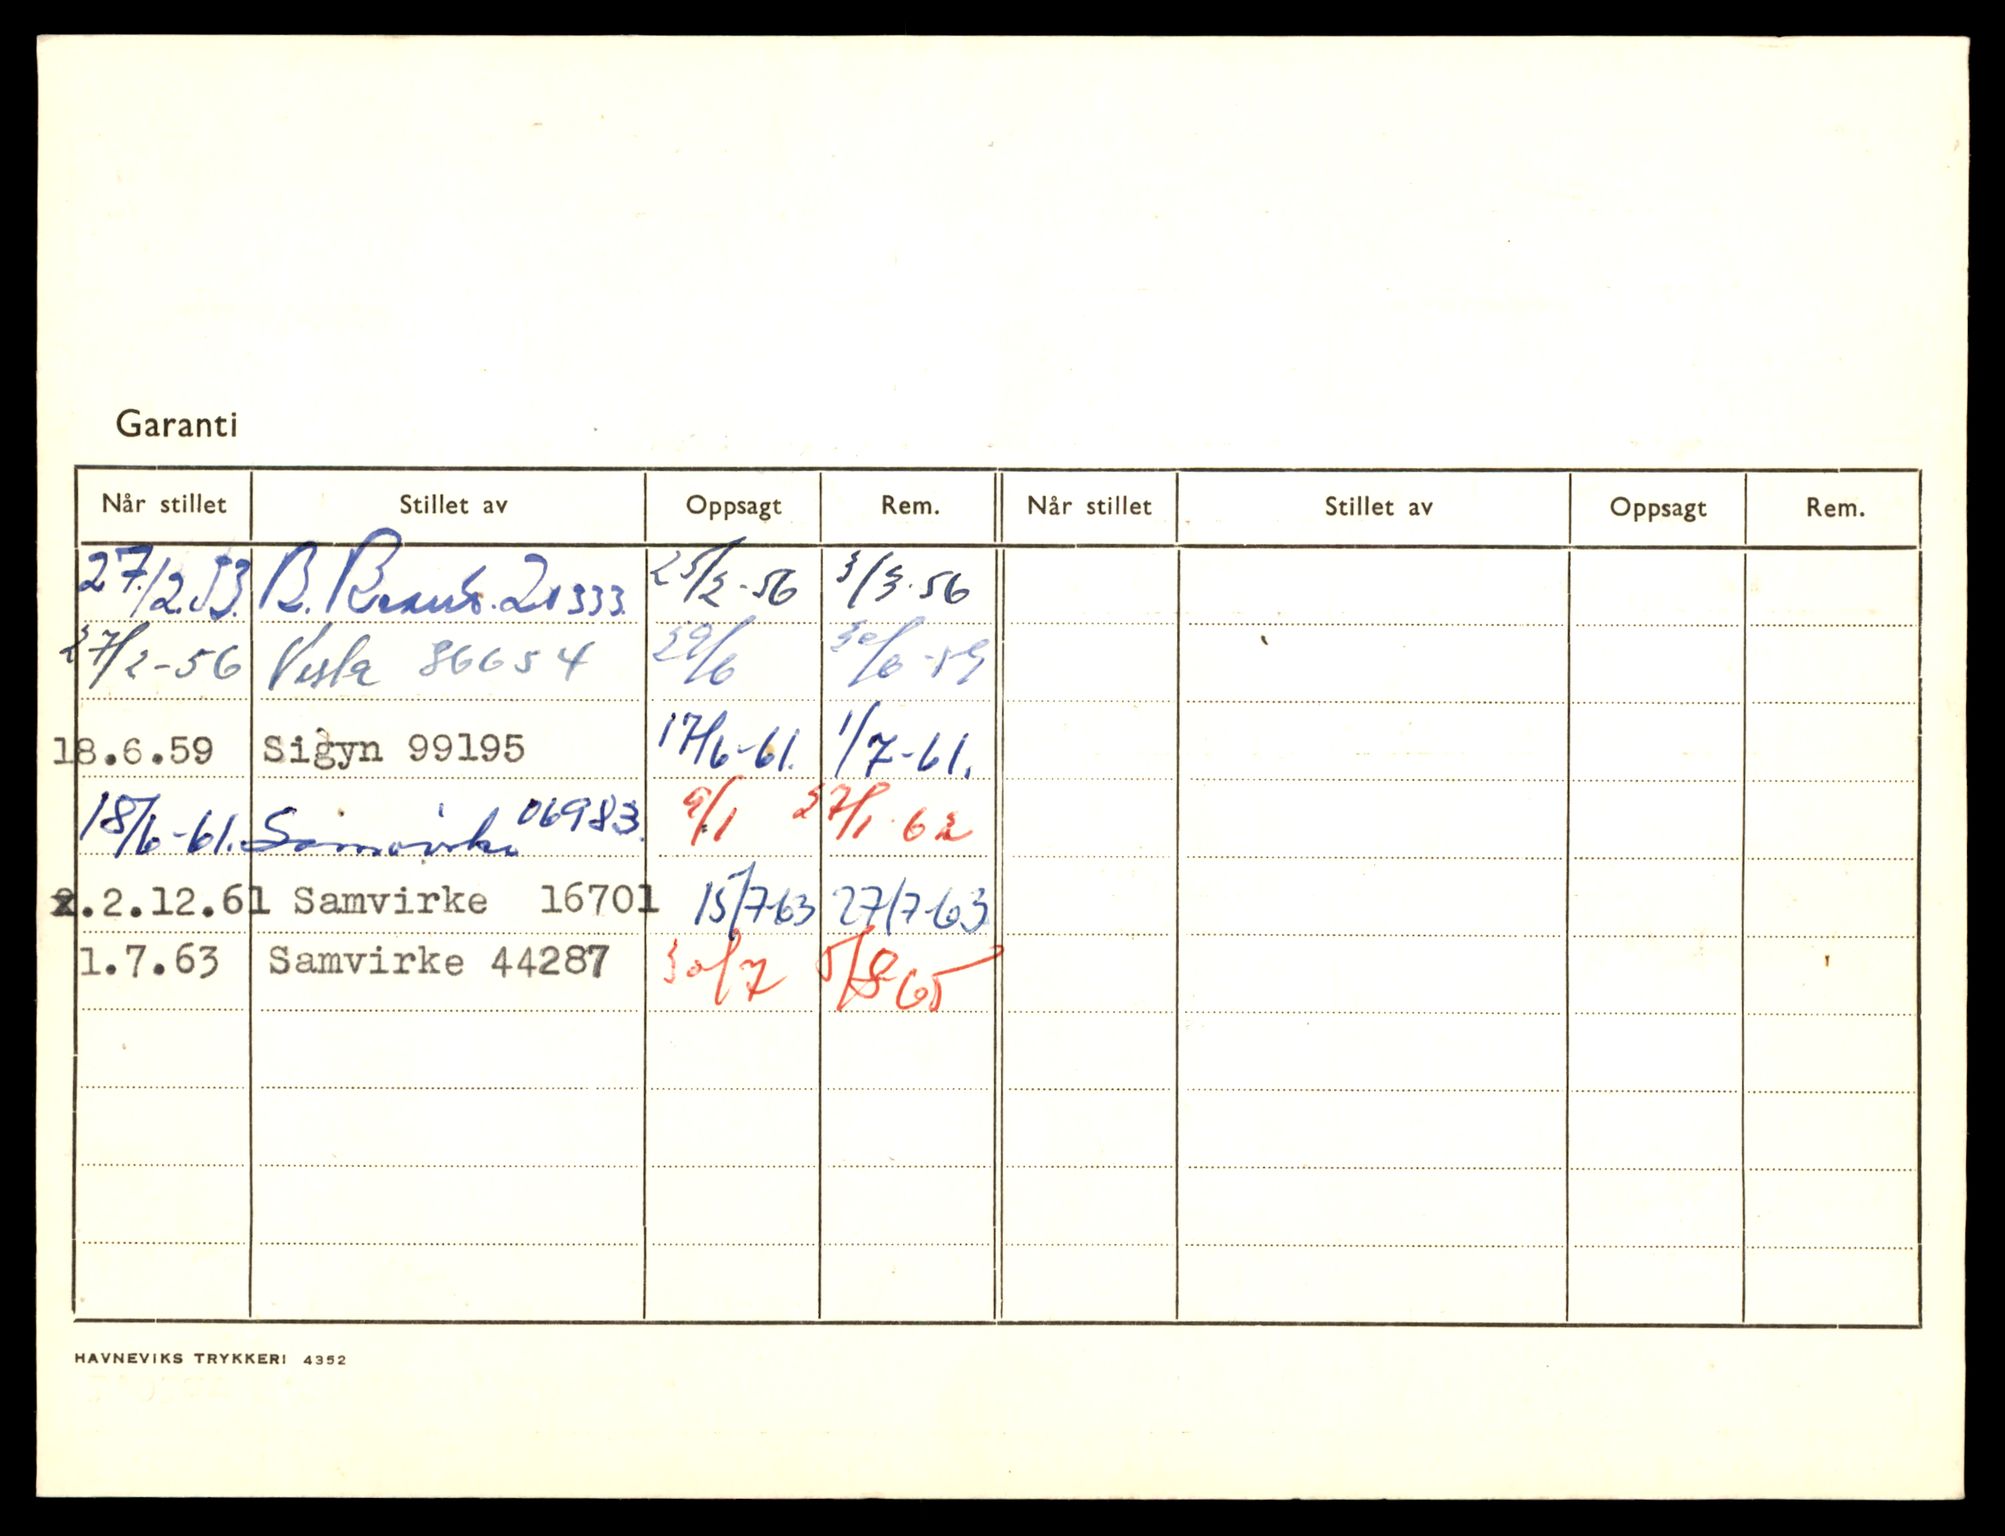 Garanti
Når stillet Stillet av Oppsagt Rem. Når stillet Stillet av Oppsagt Rem.
27/2.53. B. 21333. 25/2-56 3/3.56
27/2-56 Vesta 86654 29/6 30/6-59
18.6.59 Sigyn 99195 17/6-61. 1/7-61.
18/6-61. Samvirke 06983. 9/1 27/1.62
.2.12.61 Samvirke 16701 15/7-63 27/7-63
1.7.63 Samvirke 44287 30/7 5/8 65
HAVNEVIKS TRYKKERI 4352